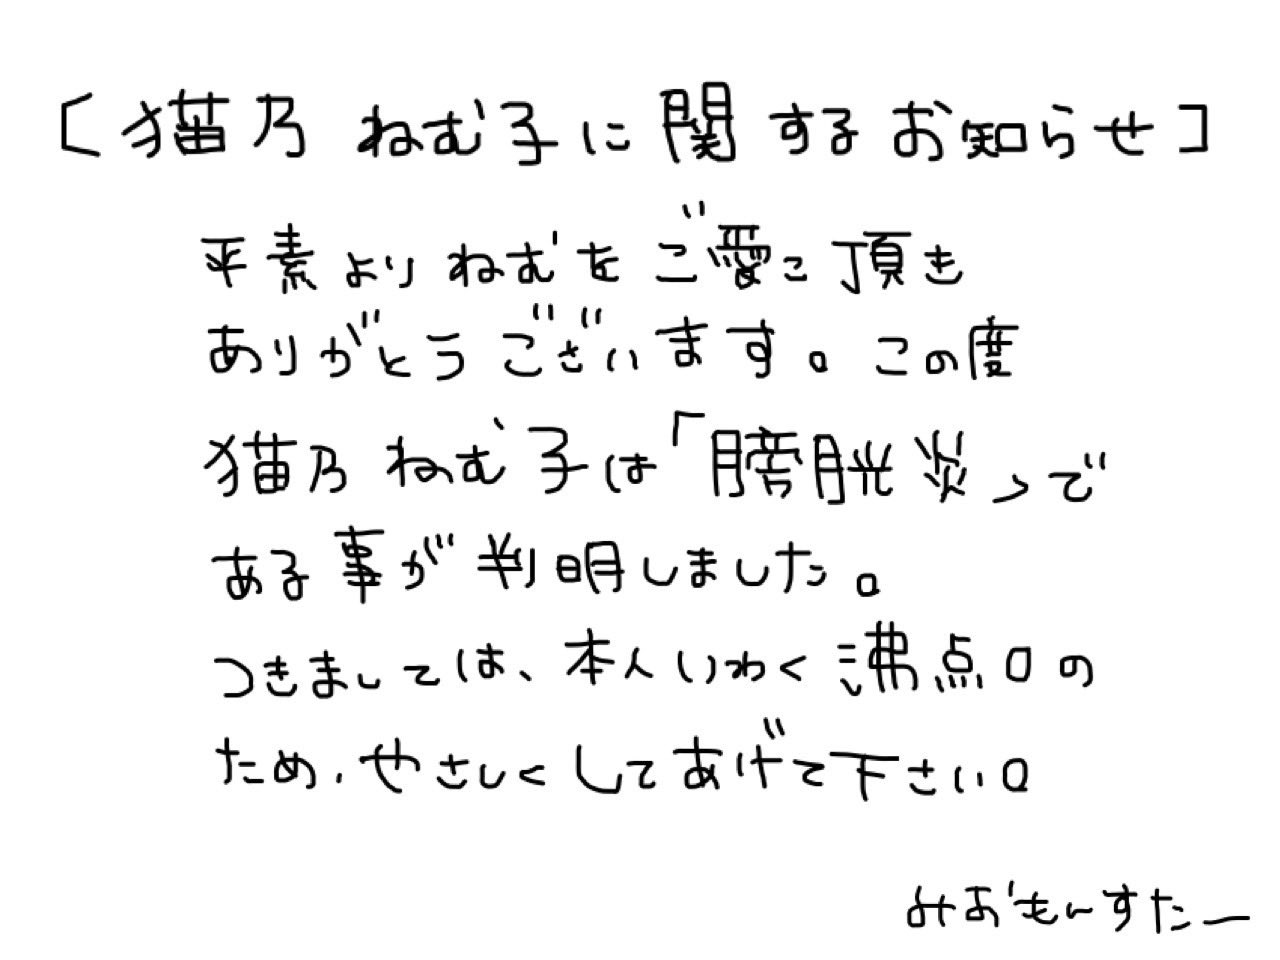 [猫乃ねむ子に関するお知らせ]
平素よりねむをご愛こ頂き
ありがとうございます。この度
猫乃ねむ子は「膀胱炎」で
ある事が判明しました。
つきましては、本人いわく沸点0の
ため、やさしくしてあげて下さい。
みおもんすたー